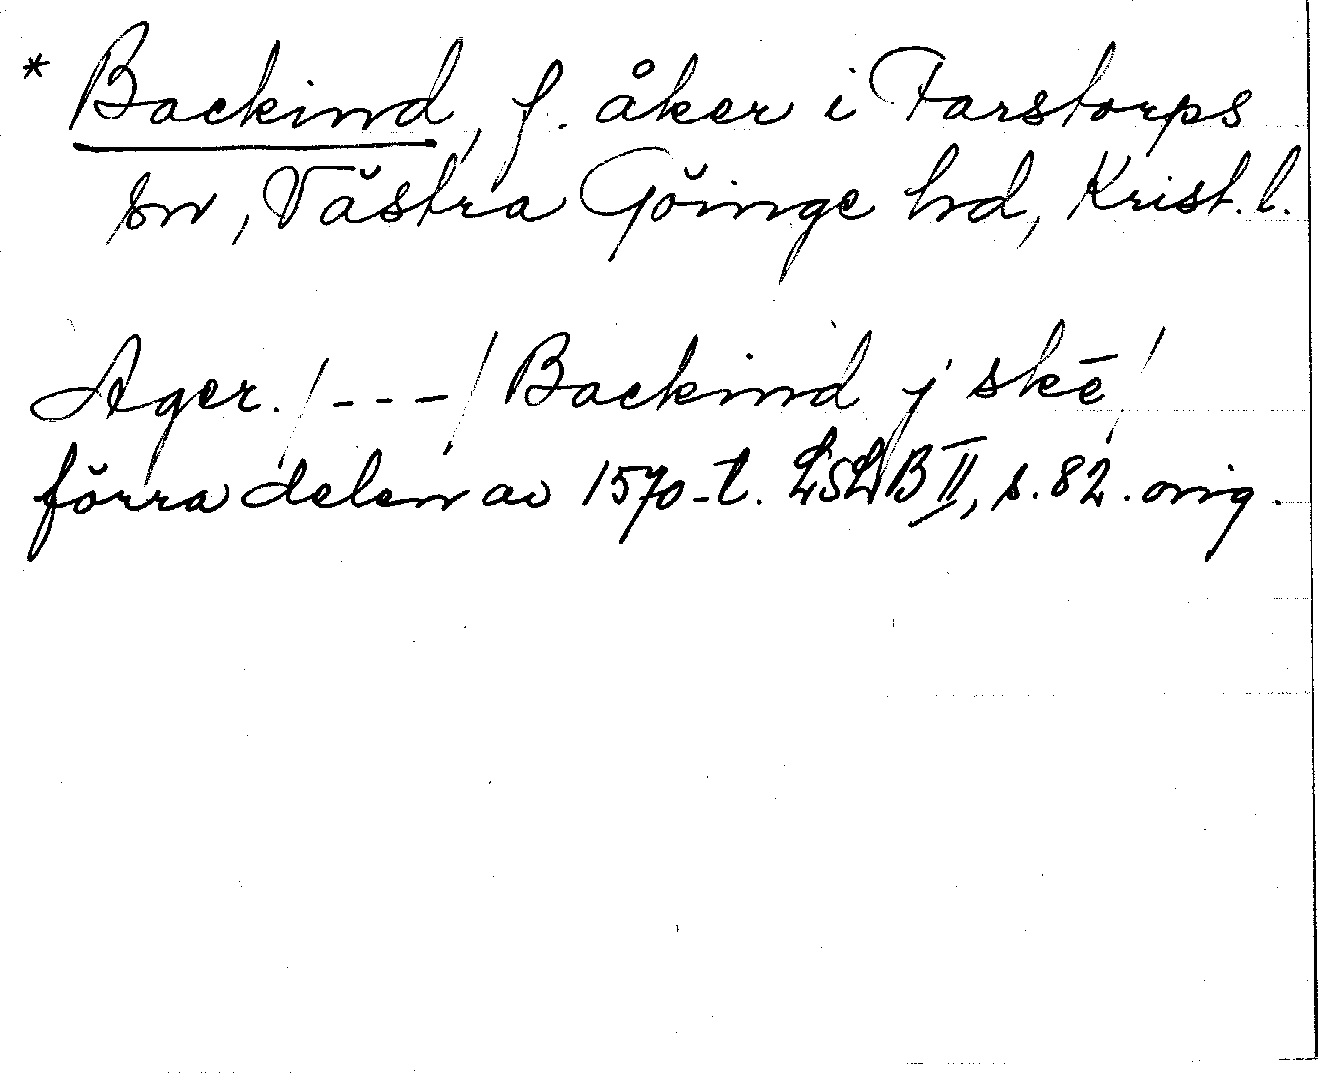 * Backind, f. åker i Farstorps
sn, Västra Göinge hd, Krist. l.
Ager. /---/ Backind j skē
förra delen av 1570-t. LSLB II, s. 82. orig.